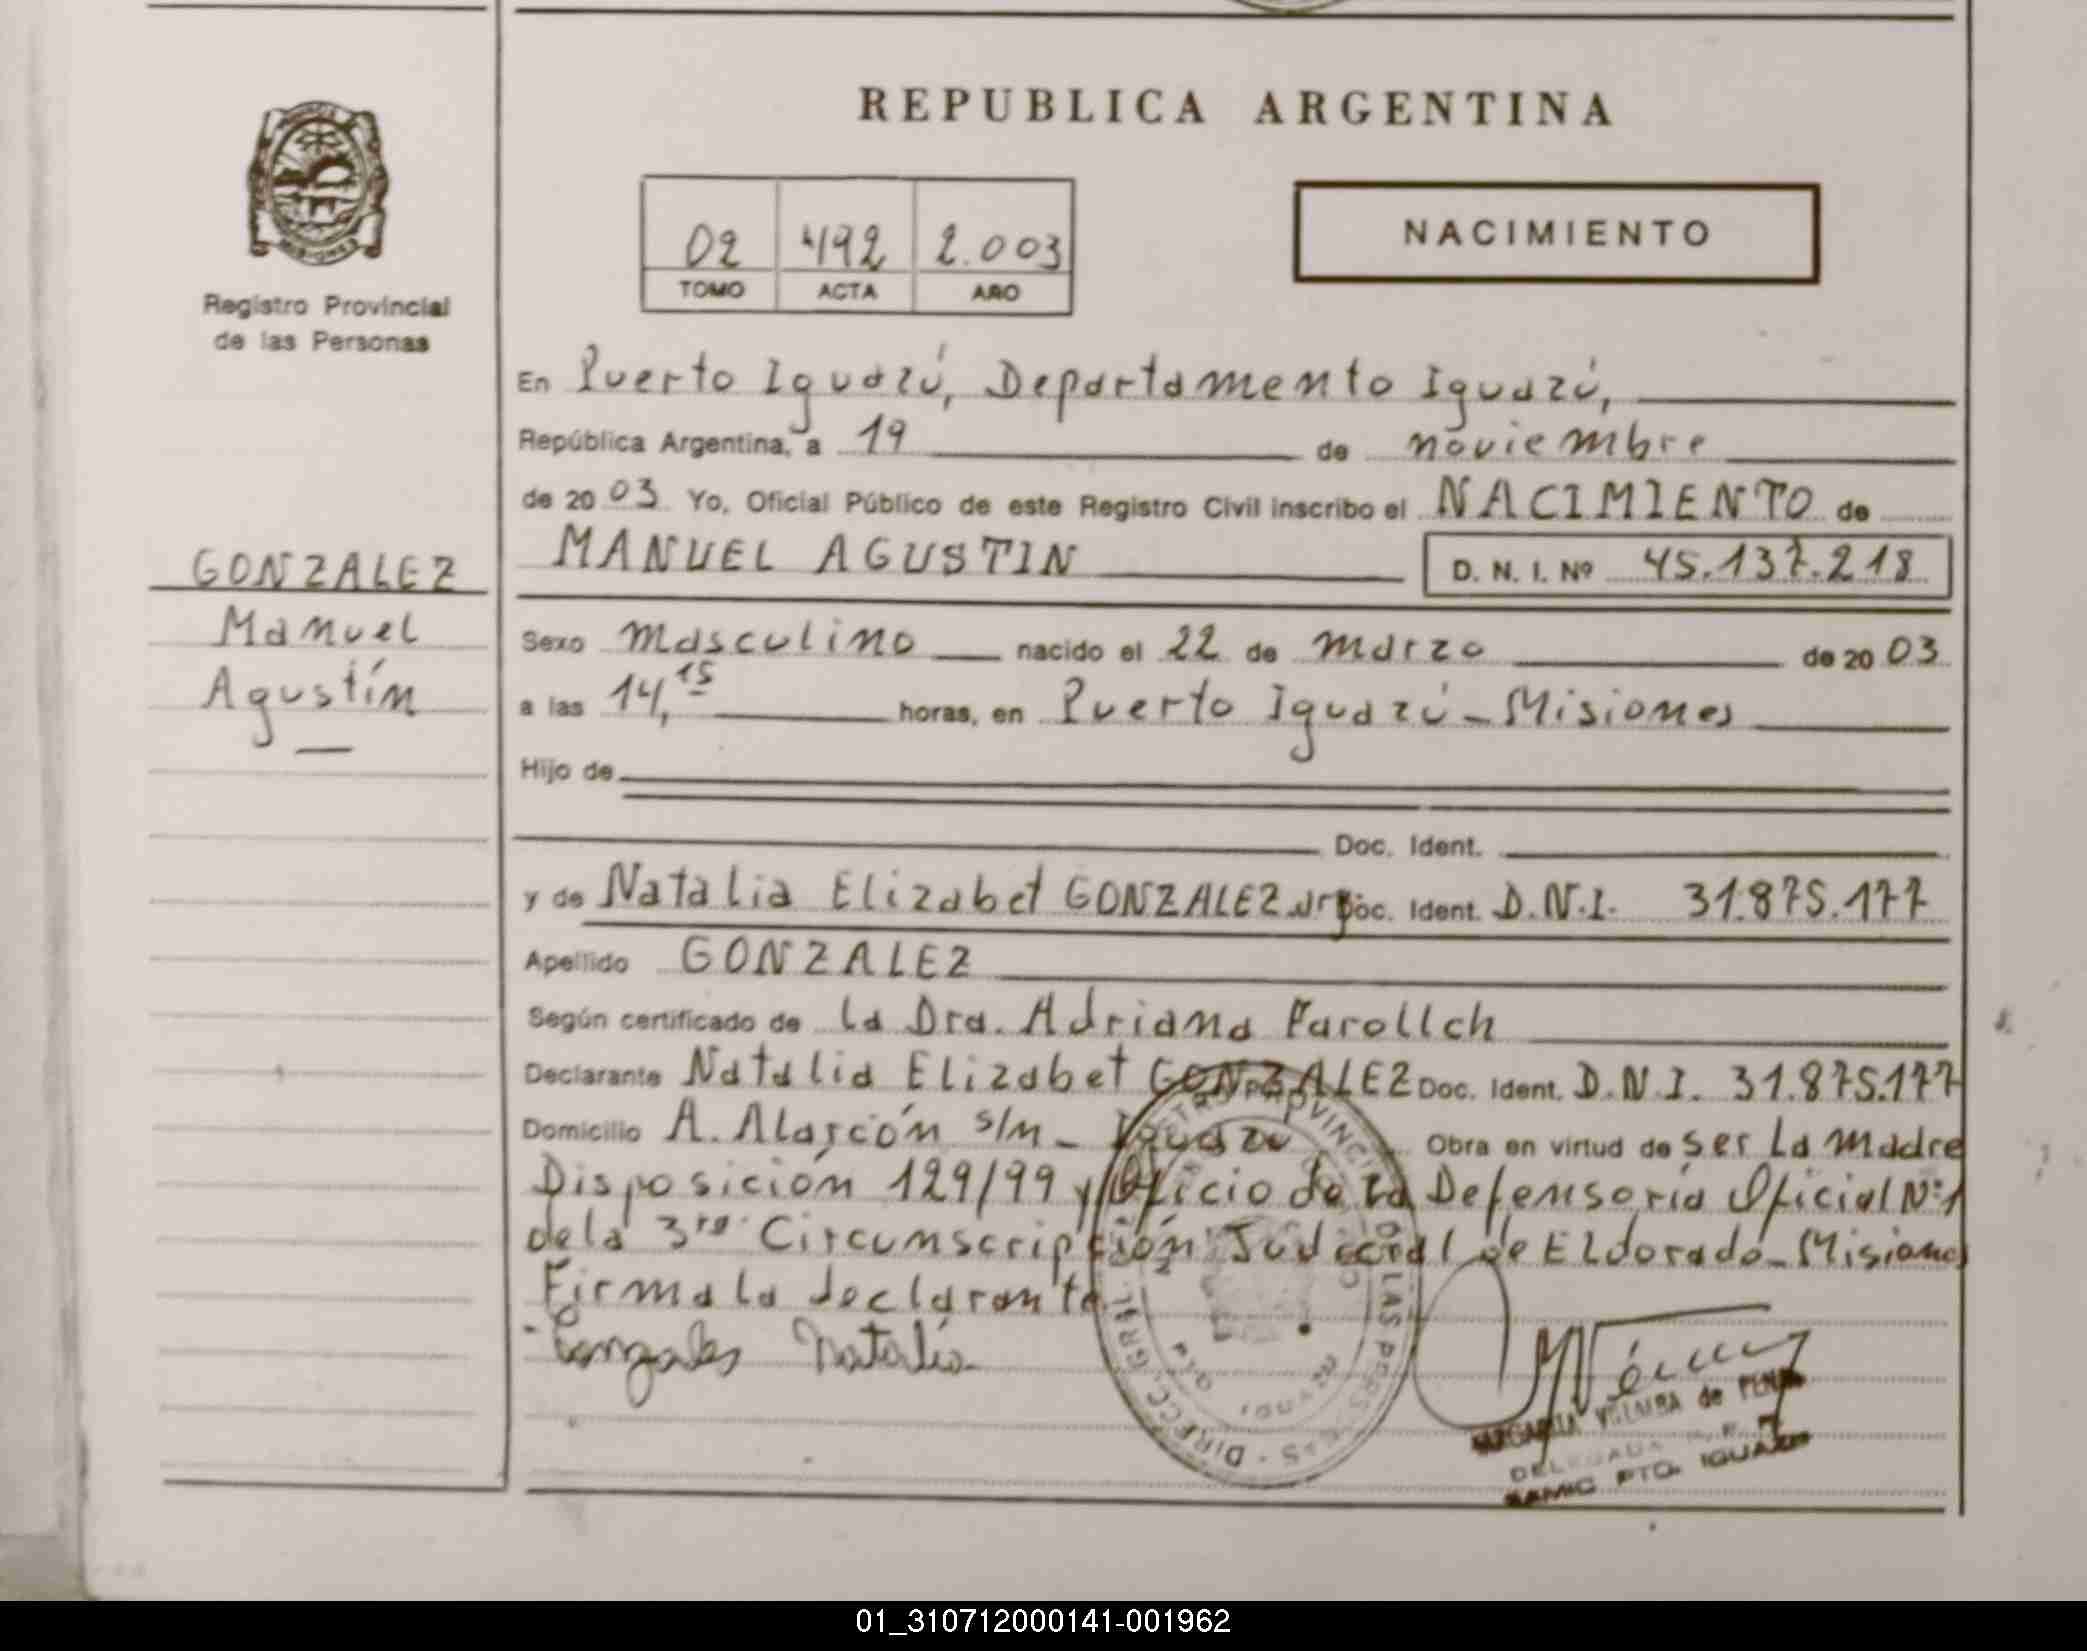 REPUBLICA ARGENTINA
NACIMIENTO
02 492 2.003
TOMO ACTA AÑO
Registro Provincial
de las Personas
En Puerto Iguazú, Departamento Iguazú,
República Argentina, a 19 de noviembre
de 20 03 Yo, Oficial Público de este Registro Civil inscribo el NACIMIENTO de
GONZALEZ
Manuel
Agustín
MANUEL AGUSTIN D. N. I. Nº 45.137.218
Sexo masculino nacido el 22 de marzo de 20 03
a las 14,15 horas, en Puerto Iguazú - Misiones
Hijo de
Doc. Ident.
y de Natalia Elizabet GONZALEZ Doc. Ident. D.N.I. 31.875.177
Apellido GONZALEZ
Según certificado de la Dra. Adriana
Declarante Natalia Elizabet GONZALEZ Doc. Ident. D.N.I. 31.875.177
Domicilio A. Alarcón s/n - Iguazú Obra en virtud de ser la madre
Disposición 129/99 y Oficio de la Defensoría Oficial Nº 1
de la 3ra. Circunscripción Judicial de Eldorado - Misiones
Firma la declarante
Gonzales Natalia
de
DELEGADA
SAMIC PTO. IGUAZU
01_310712000141-001962